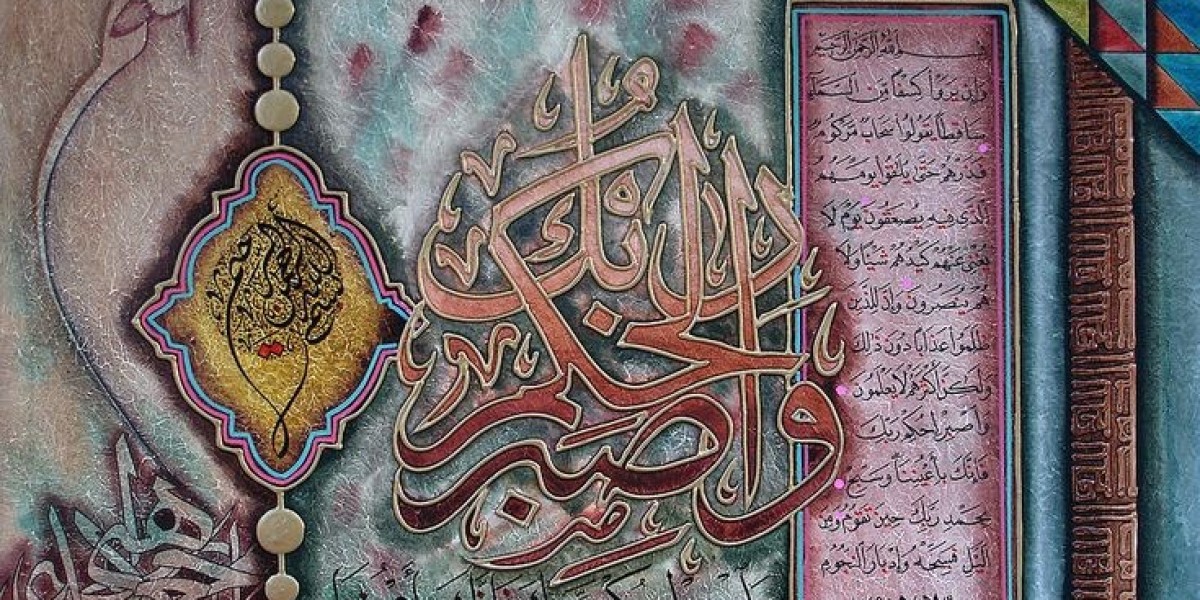 واصبر لحكم ربك
بسم الله الرحمن الرحيم
بسم الله الرحمن الرحيم
وإن يروا كسفا من السماء
ساقطا يقولوا سحاب مركوم
فذرهم حتى يلاقوا يومهم
الذي فيه يصعقون يوم لا
يغني عنهم كيدهم شيئا ولا
هم ينصرون وإن للذين
ظلموا عذابا دون ذلك
ولكن أكثرهم لا يعلمون
واصبر لحكم ربك
فإنك بأعيننا وسبح
بحمد ربك حين تقوم ومن
الليل فسبحه وإدبار النجوم